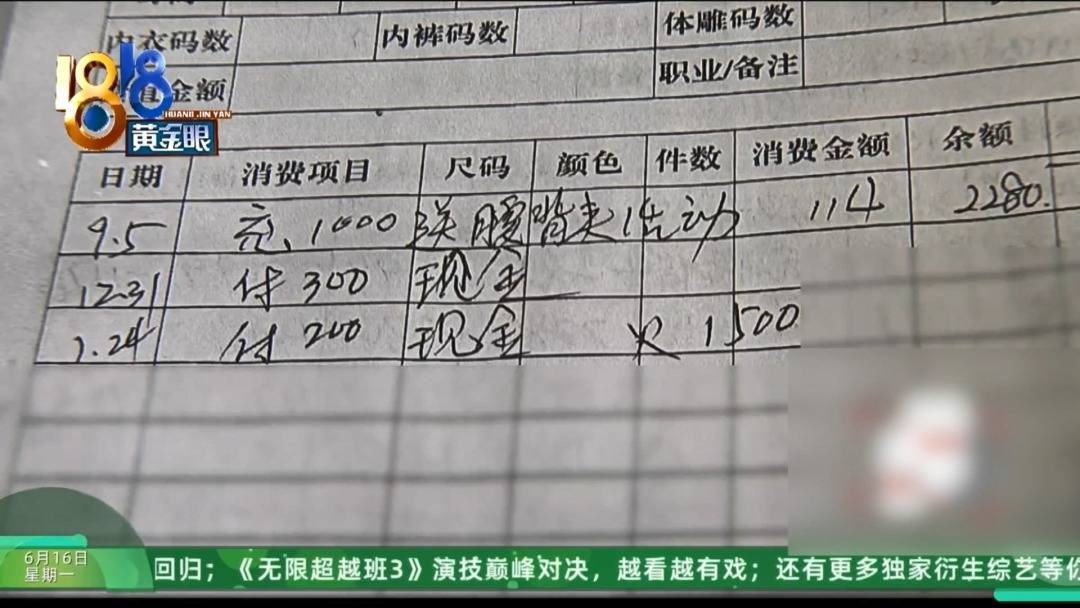 内衣码数 内裤码数 体雕码数
金额 职业/备注
1818
HUANG JIN YAN
黄金眼
日期 消费项目 尺码 颜色 件数 消费金额 余额
9.5 充、1000 送暖背夹活动 114 2280.
12.31 付 300 现金
1.24 付 200 现金 欠 1500
6月16日
星期一
回归；《无限超越班3》演技巅峰对决，越看越有戏；还有更多独家衍生综艺等你